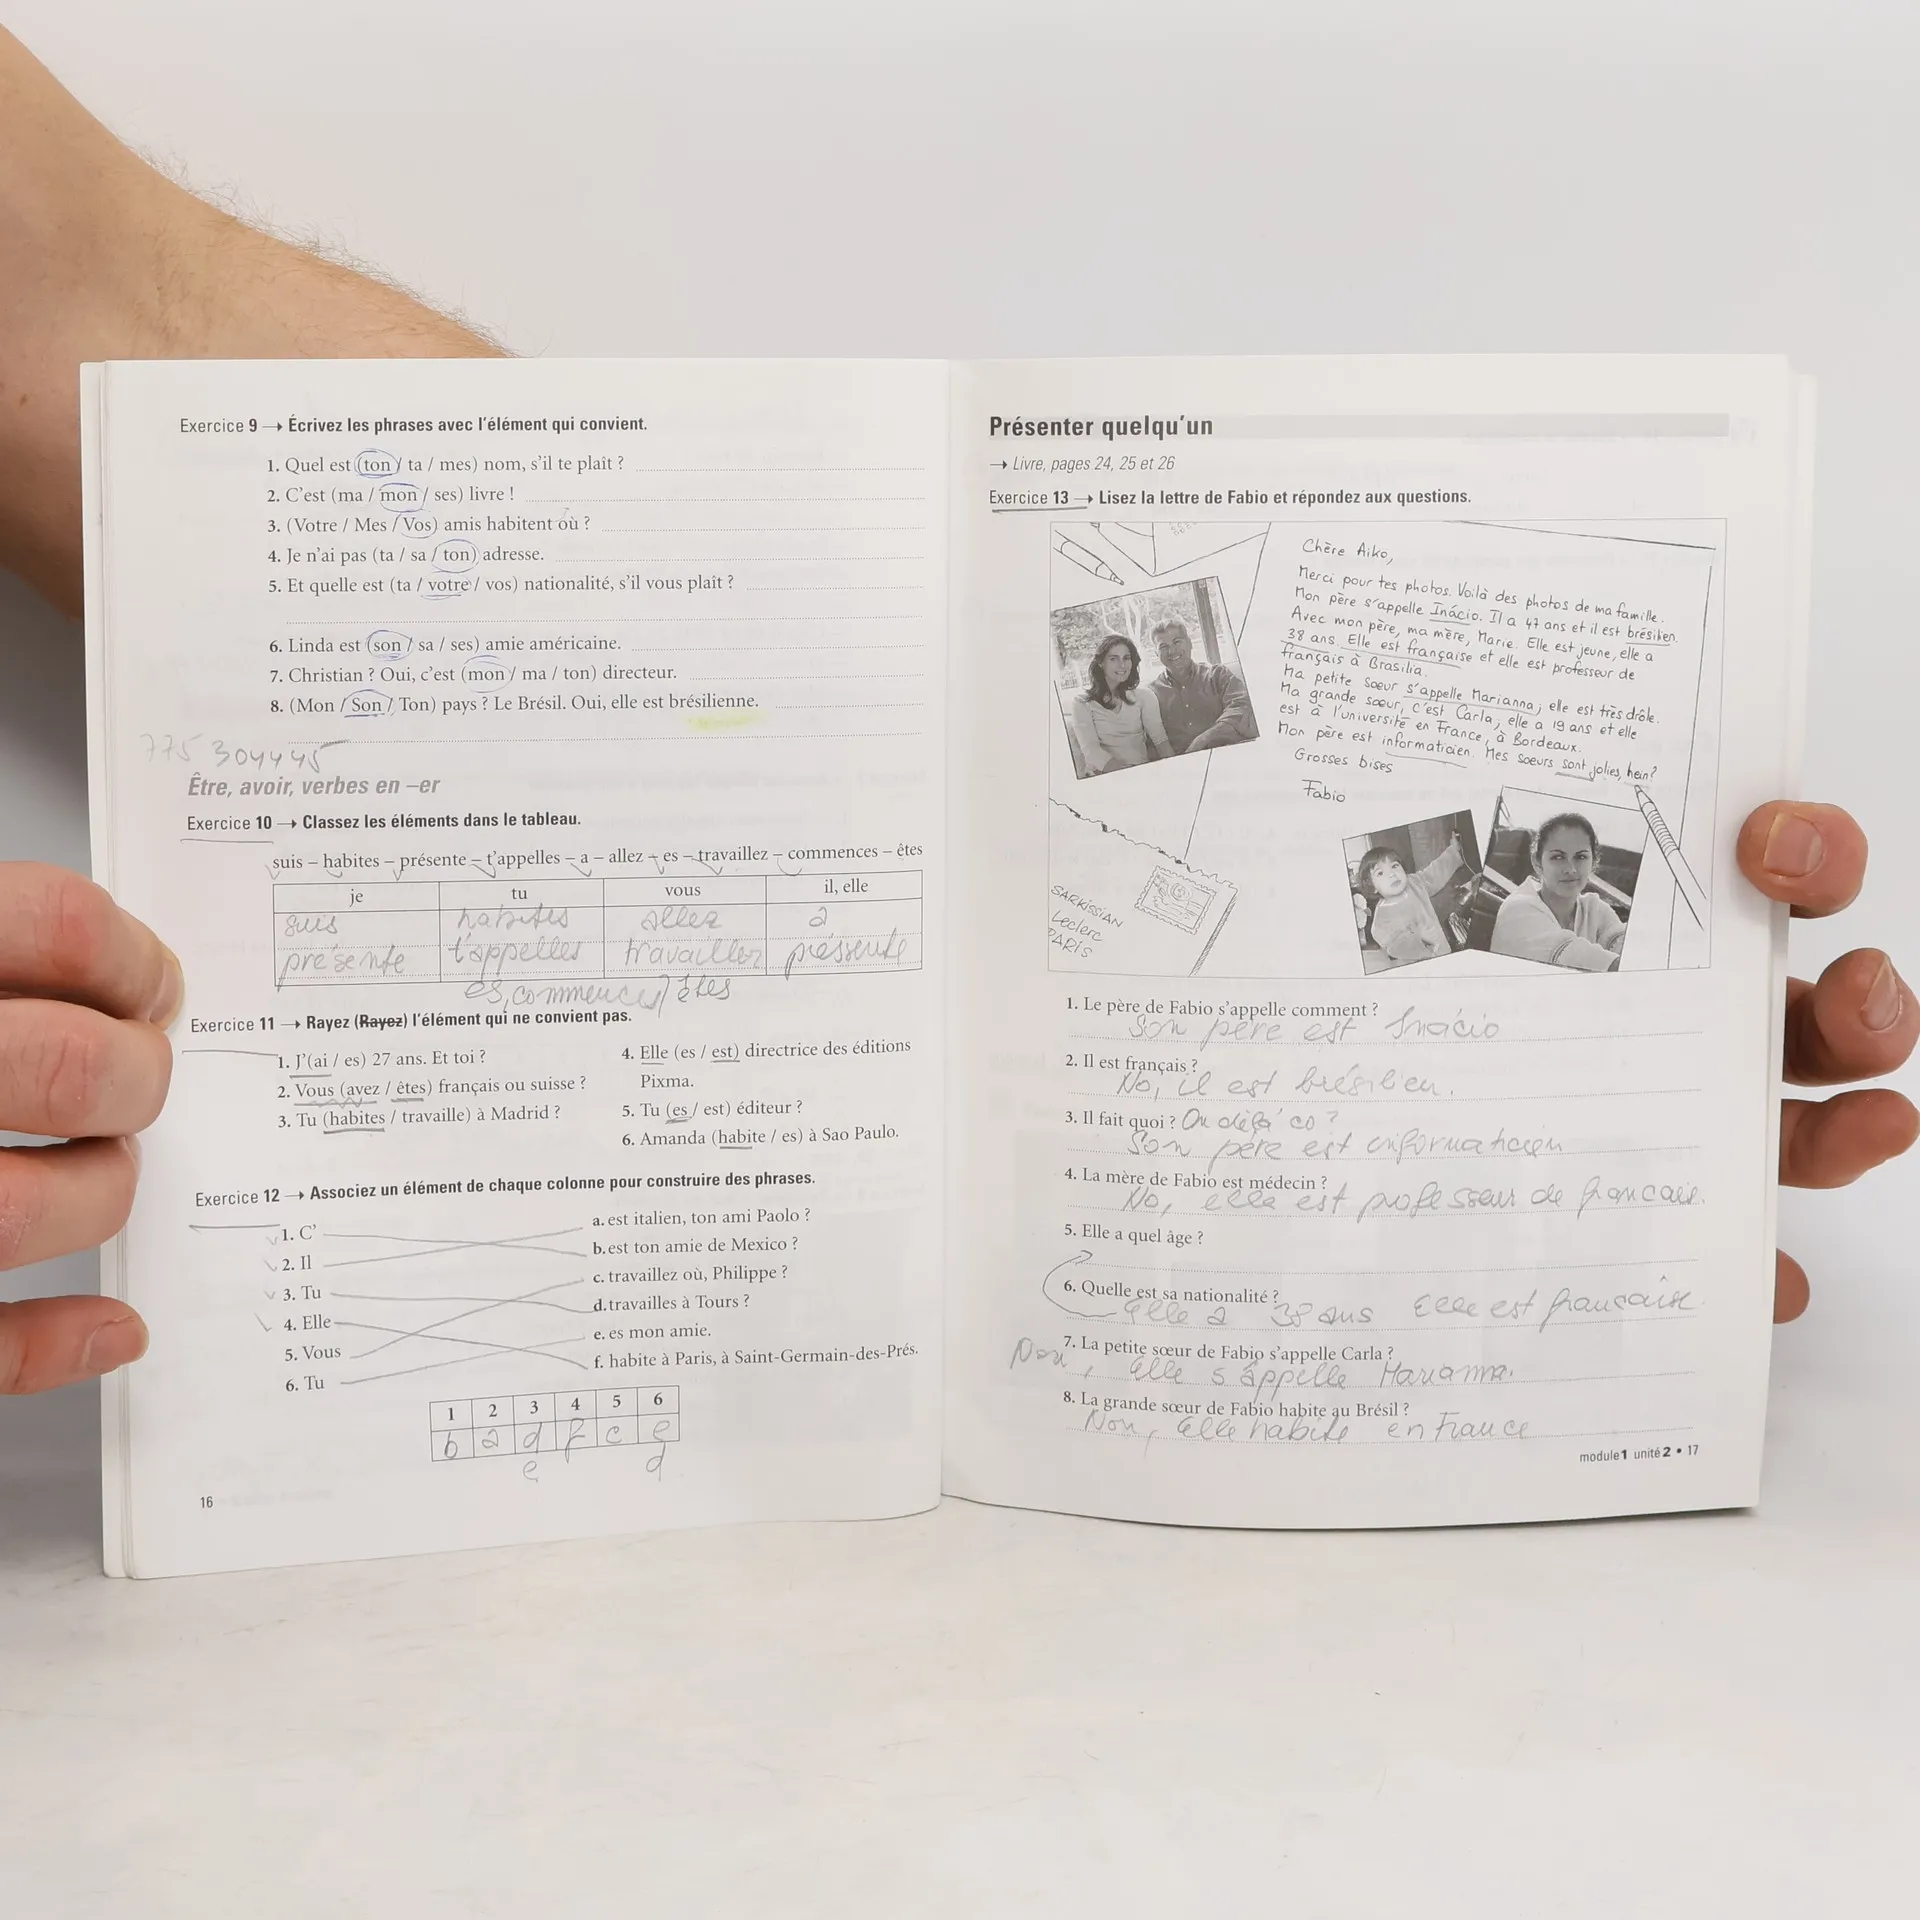 Exercice 9 → Écrivez les phrases avec l'élément qui convient.
1. Quel est (ton / ta / mes) nom, s'il te plaît ?
2. C'est (ma / mon / ses) livre !
3. (Votre / Mes / Vos) amis habitent où ?
4. Je n'ai pas (ta / sa / ton) adresse.
5. Et quelle est (ta / votre / vos) nationalité, s'il vous plaît ?
6. Linda est (son / sa / ses) amie américaine.
7. Christian ? Oui, c'est (mon / ma / ton) directeur.
8. (Mon / Son / Ton) pays ? Le Brésil. Oui, elle est brésilienne.
775 304445
Être, avoir, verbes en –er
Exercice 10 → Classez les éléments dans le tableau.
suis – habites – présente – t'appelles – a – allez – es – travaillez – commences – êtes
je tu vous il, elle
suis habites allez a
présente t'appelles travaillez préssente
es, commences êtes
Exercice 11 → Rayez (Rayez) l'élément qui ne convient pas.
1. J'(ai / es) 27 ans. Et toi ?
2. Vous (avez / êtes) français ou suisse ?
3. Tu (habites / travaille) à Madrid ?
4. Elle (es / est) directrice des éditions
Pixma.
5. Tu (es / est) éditeur ?
6. Amanda (habite / es) à Sao Paulo.
Exercice 12 → Associez un élément de chaque colonne pour construire des phrases.
1. C'
2. Il
3. Tu
4. Elle
5. Vous
6. Tu
a. est italien, ton ami Paolo ?
b. est ton amie de Mexico ?
c. travaillez où, Philippe ?
d. travailles à Tours ?
e. es mon amie.
f. habite à Paris, à Saint-Germain-des-Prés.
1 2 3 4 5 6
b a d f c e
e d
16
Présenter quelqu'un
→ Livre, pages 24, 25 et 26
Exercice 13 → Lisez la lettre de Fabio et répondez aux questions.
Chère Aiko,
Merci pour tes photos. Voilà des photos de ma famille.
Mon père s'appelle Inácio. Il a 47 ans et il est brésilien.
Avec mon père, ma mère, Marie. Elle est jeune, elle a
38 ans. Elle est française et elle est professeur de
français à Brasilia.
Ma petite sœur s'appelle Marianna, elle est très drôle.
Ma grande sœur, c'est Carla, elle a 19 ans et elle
est à l'université en France, à Bordeaux.
Mon père est informaticien. Mes sœurs sont jolies, hein?
Grosses bises
Fabio
SARKISSIAN
Leclerc
PARIS
1. Le père de Fabio s'appelle comment ?
Son père est Inácio
2. Il est français ?
No, il est brésilien.
3. Il fait quoi ? On dělá co ?
Son père est informaticien
4. La mère de Fabio est médecin ?
No, elle est professeur de francais.
5. Elle a quel âge ?
6. Quelle est sa nationalité ?
Elle a 38 ans Elle est française
7. La petite sœur de Fabio s'appelle Carla ?
Non, elle s'appelle Marianna.
8. La grande sœur de Fabio habite au Brésil ?
Non, elle habite en France
module 1 unité 2 • 17